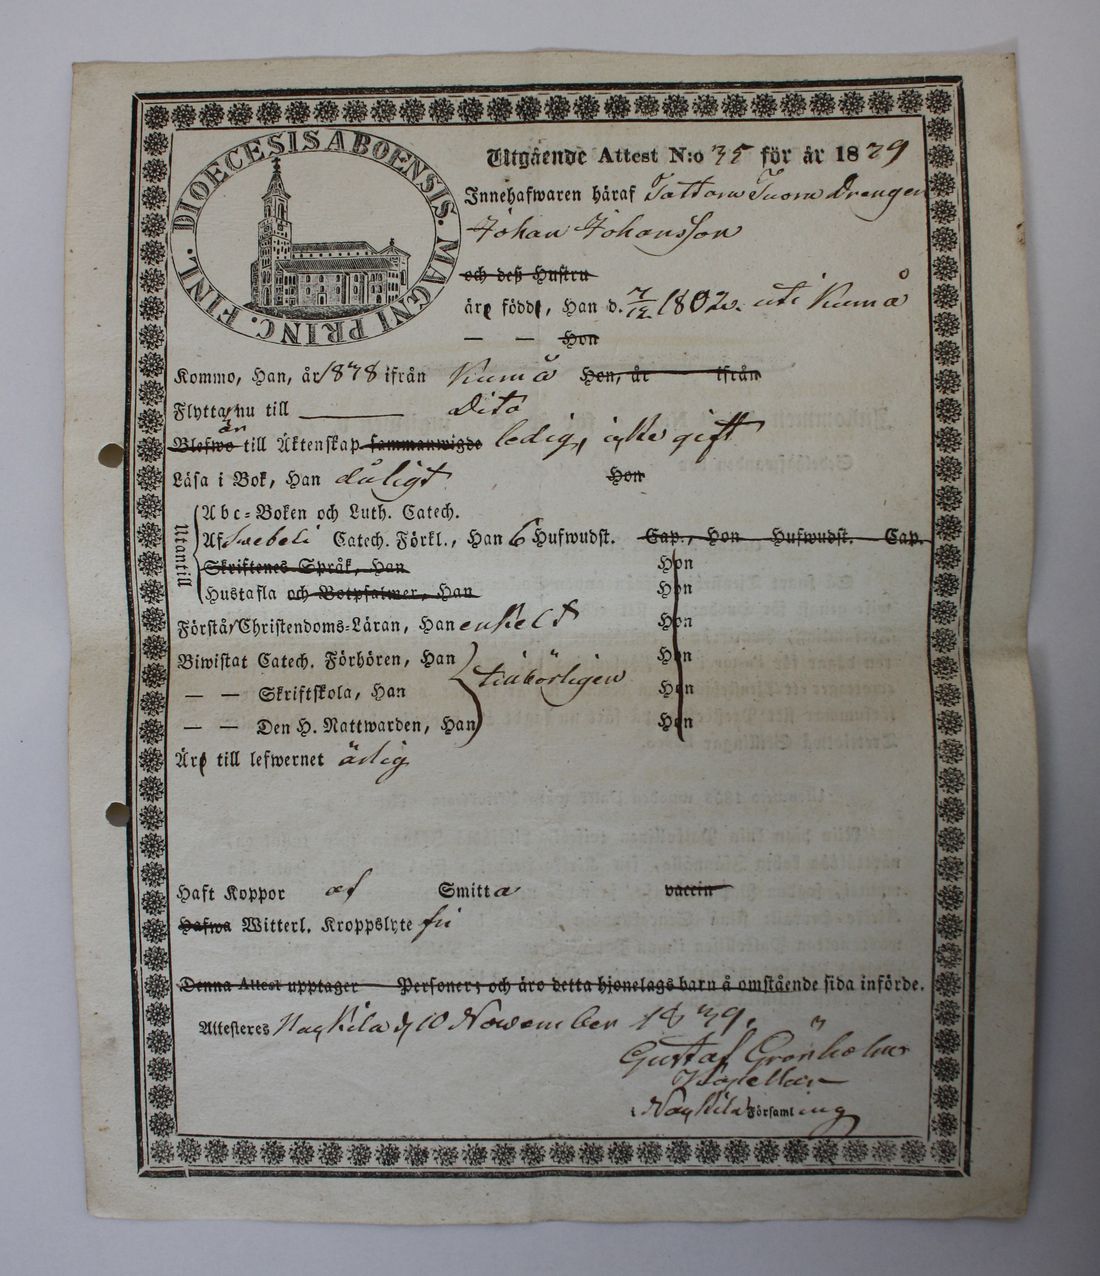 DIOECESIS ABOENSIS. MAGNI PRINC. FINL.
Utgående Attest N:o 35 för år 1839
Innehafwaren häraf Drengen
Johan Johansson
och deß Hustru
äro födde, Han d. 7/12 1802. uti Kumå
— — Hon
Kommo, Han, år 1838 ifrån Kumå Hon, år ifrån
Flytta nu till ——— Dito
är
Blefwo till Äktenskap sammanwigde ledig, icke gift
Läsa i Bok, Han dåligt Hon
Utantill
Abc-Boken och Luth. Catech.
Af Swebeli Catech. Förkl., Han 6 Hufwudst. Cap., Hon Hufwudst. Cap.
Skriftenes Språk, Han Hon
Hustafla och Botpsalmer, Han Hon
Förstå Christendoms-Läran, Han enkelt Hon
Biwistat Catech. Förhören, Han Hon
— — Skriftskola, Han tillbörligen Hon
— — Den H. Nattwarden, Han Hon
Äro till lefwernet ärlig
Haft Koppor af Smitta vaccin
Hafwa Witterl. Kroppslyte fri
Denna Attest upptager Personer; och äro detta hjonelags barn å omstående sida införde.
Attesteras Nakkila d 10 November 1839.
Gustaf Grönholm
Kapellan
i Nakkila Församling